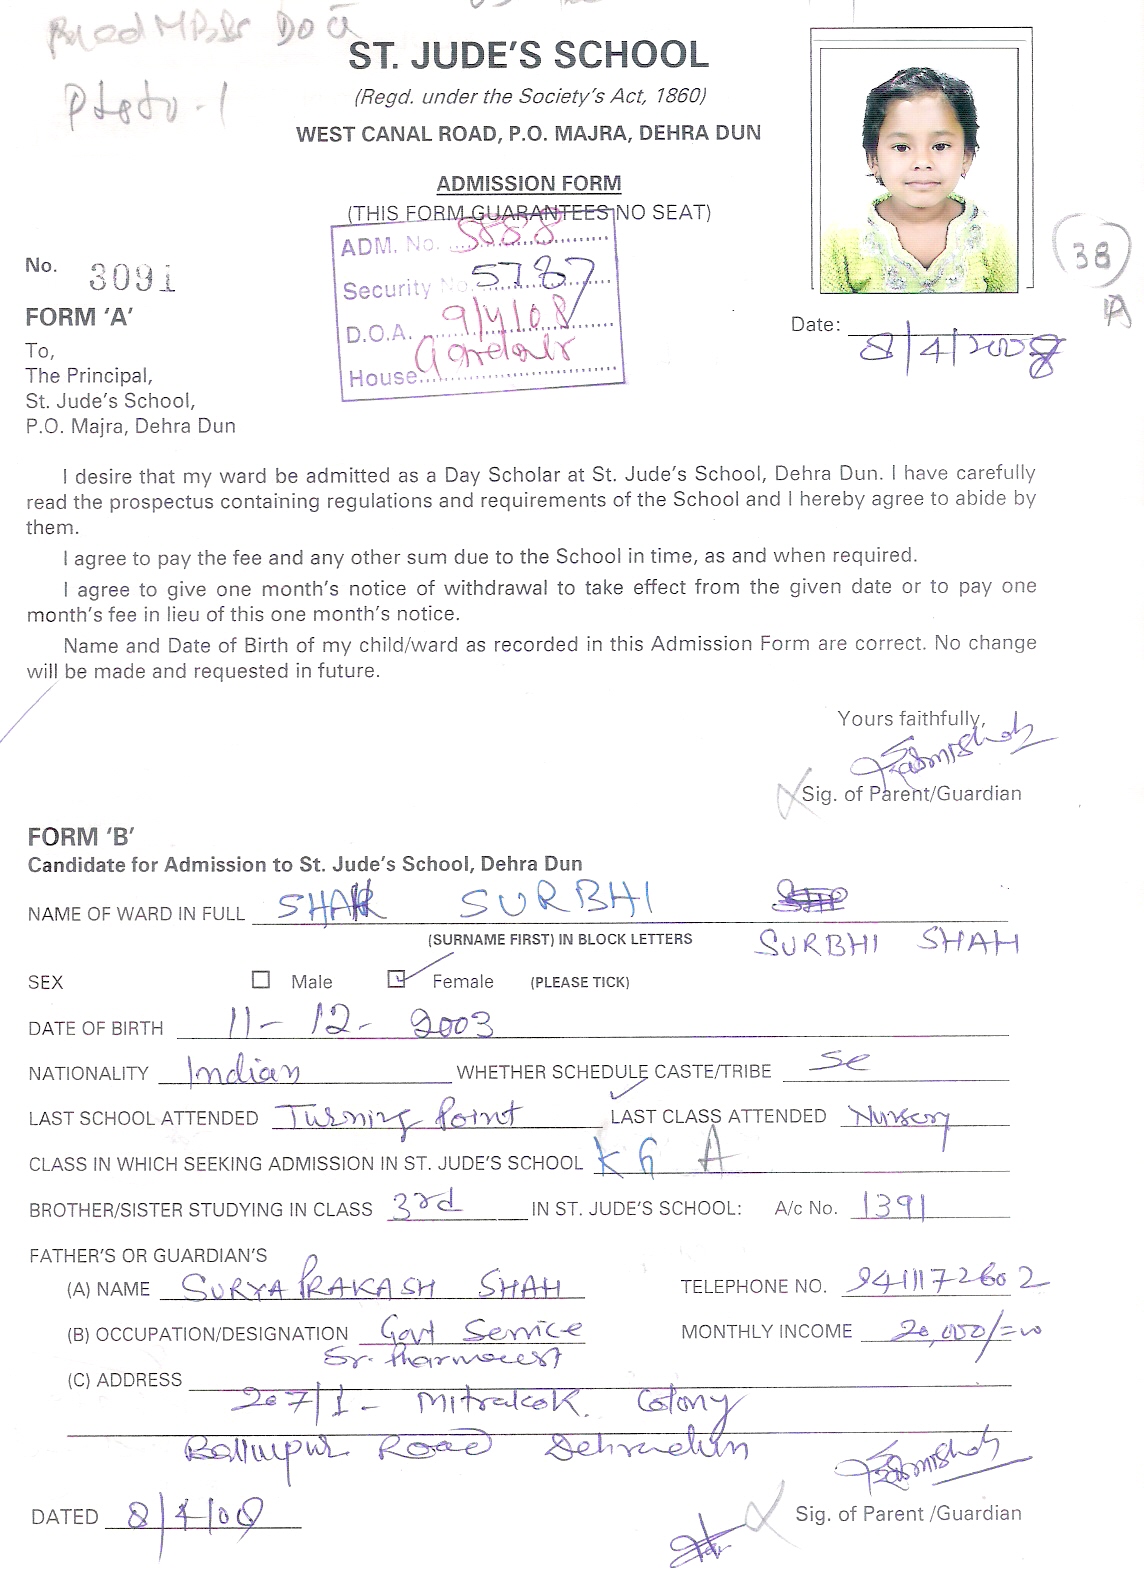 ST. JUDE'S SCHOOL
(Regd. under the Society's Act, 1860)
WEST CANAL ROAD, P.O. MAJRA, DEHRA DUN
ADMISSION FORM
(THIS FORM GUARANTEES NO SEAT)
ADM. No. 5888
Security No. 5787
D.O.A. 9/4/08
House
38
A
No. 3091
Date: 8/4/2008
FORM 'A'
To,
The Principal,
St. Jude's School,
P.O. Majra, Dehra Dun
I desire that my ward be admitted as a Day Scholar at St. Jude's School, Dehra Dun. I have carefully
read the prospectus containing regulations and requirements of the School and I hereby agree to abide by
them.
I agree to pay the fee and any other sum due to the School in time, as and when required.
I agree to give one month's notice of withdrawal to take effect from the given date or to pay one
month's fee in lieu of this one month's notice.
Name and Date of Birth of my child/ward as recorded in this Admission Form are correct. No change
will be made and requested in future.
Yours faithfully,
Sig. of Parent/Guardian
FORM 'B'
Candidate for Admission to St. Jude's School, Dehra Dun
NAME OF WARD IN FULL SHAH SURBHI
(SURNAME FIRST) IN BLOCK LETTERS SURBHI SHAH
SEX Male Female (PLEASE TICK)
DATE OF BIRTH 11-12-2003
NATIONALITY Indian WHETHER SCHEDULE CASTE/TRIBE SC
LAST SCHOOL ATTENDED Turning Point LAST CLASS ATTENDED Nursery
CLASS IN WHICH SEEKING ADMISSION IN ST. JUDE'S SCHOOL KG A
BROTHER/SISTER STUDYING IN CLASS 3rd IN ST. JUDE'S SCHOOL: A/c No. 1391
FATHER'S OR GUARDIAN'S
(A) NAME SURYA PRAKASH SHAH TELEPHONE NO. 9411172602
(B) OCCUPATION/DESIGNATION Govt Service MONTHLY INCOME 20,000/=00
Sr. Pharmacist
(C) ADDRESS
207/1 - Mitralok Colony
Ballupur Road Dehradun
DATED 8/4/08 Sig. of Parent /Guardian